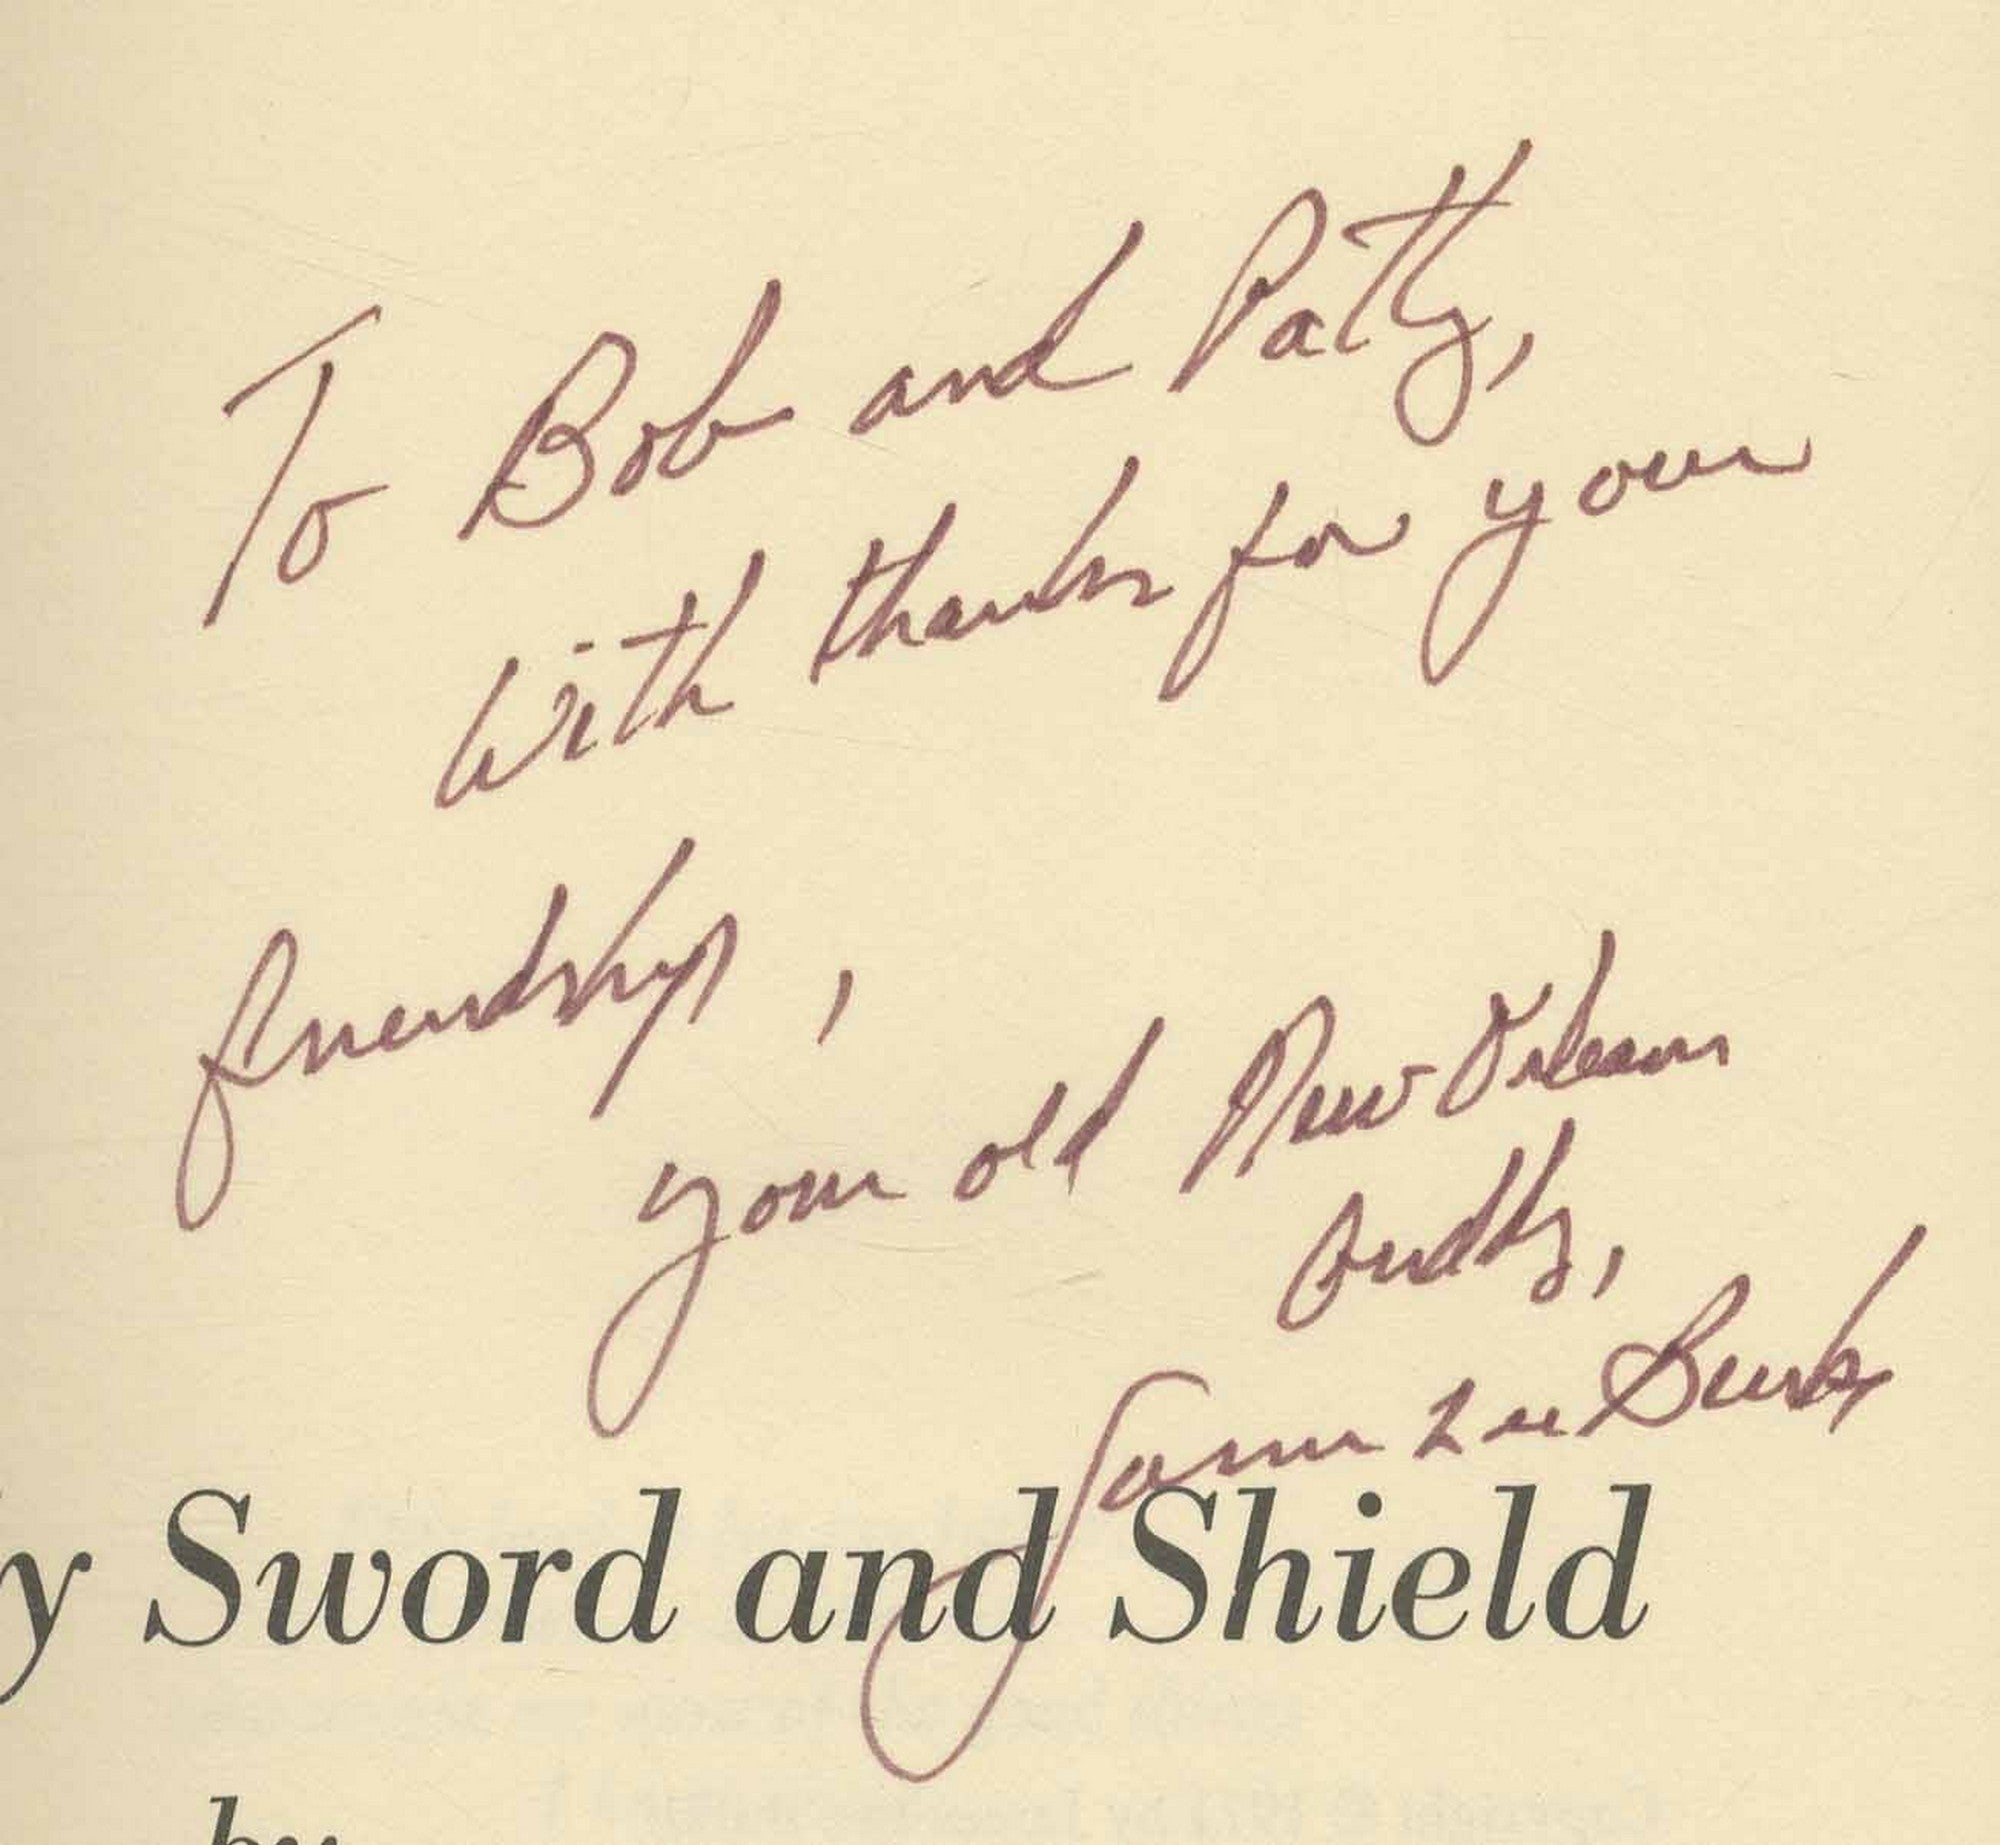 To Bob and Patty,
With thanks for your
friendship,
your old New Orleans
buddy,
James Lee Burke
y Sword and Shield
by